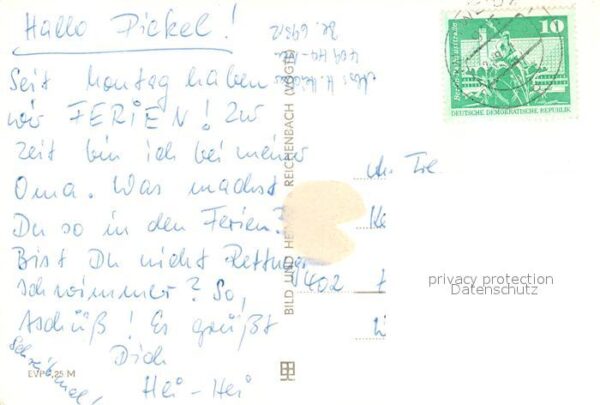 Hallo Pickel!
Seit Montag haben
wir FERIEN! Zur
Zeit bin ich bei meiner
Oma. Was machst
Du so in den Ferien?
Bist Du nicht Rettungs
schwimmer? So,
tschüß! Es grüßt
Dich
Hei-Hei
Schreib mal!
EVP 0,25 M
BILD UND HE
REICHENBACH (VOGTL
10
DEUTSCHE DEMOKRATISCHE REPUBLIK
402
privacy protection
Datenschutz